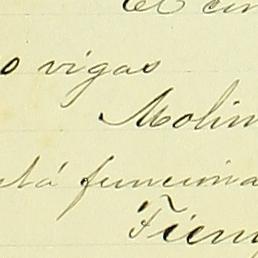 El cin
o vigas
Molin
stá funciona
Tiem